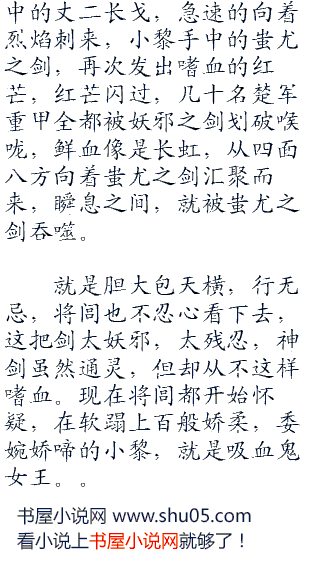 中的丈二长戈，急速的向着
烈焰刺来，小黎手中的蚩尤
之剑，再次发出嗜血的红
芒，红芒闪过，几十名楚军
重甲全都被妖邪之剑划破喉
咙，鲜血像是长虹，从四面
八方向着蚩尤之剑汇聚而
来，瞬息之间，就被蚩尤之
剑吞噬。
就是胆大包天横，行无
忌，将闾也不忍心看下去，
这把剑太妖邪，太残忍，神
剑虽然通灵，但却从不这样
嗜血。现在将闾都开始怀
疑，在软蹋上百般娇柔，委
婉娇啼的小黎，就是吸血鬼
女王。。
书屋小说网 www.shu05.com
看小说上书屋小说网就够了！